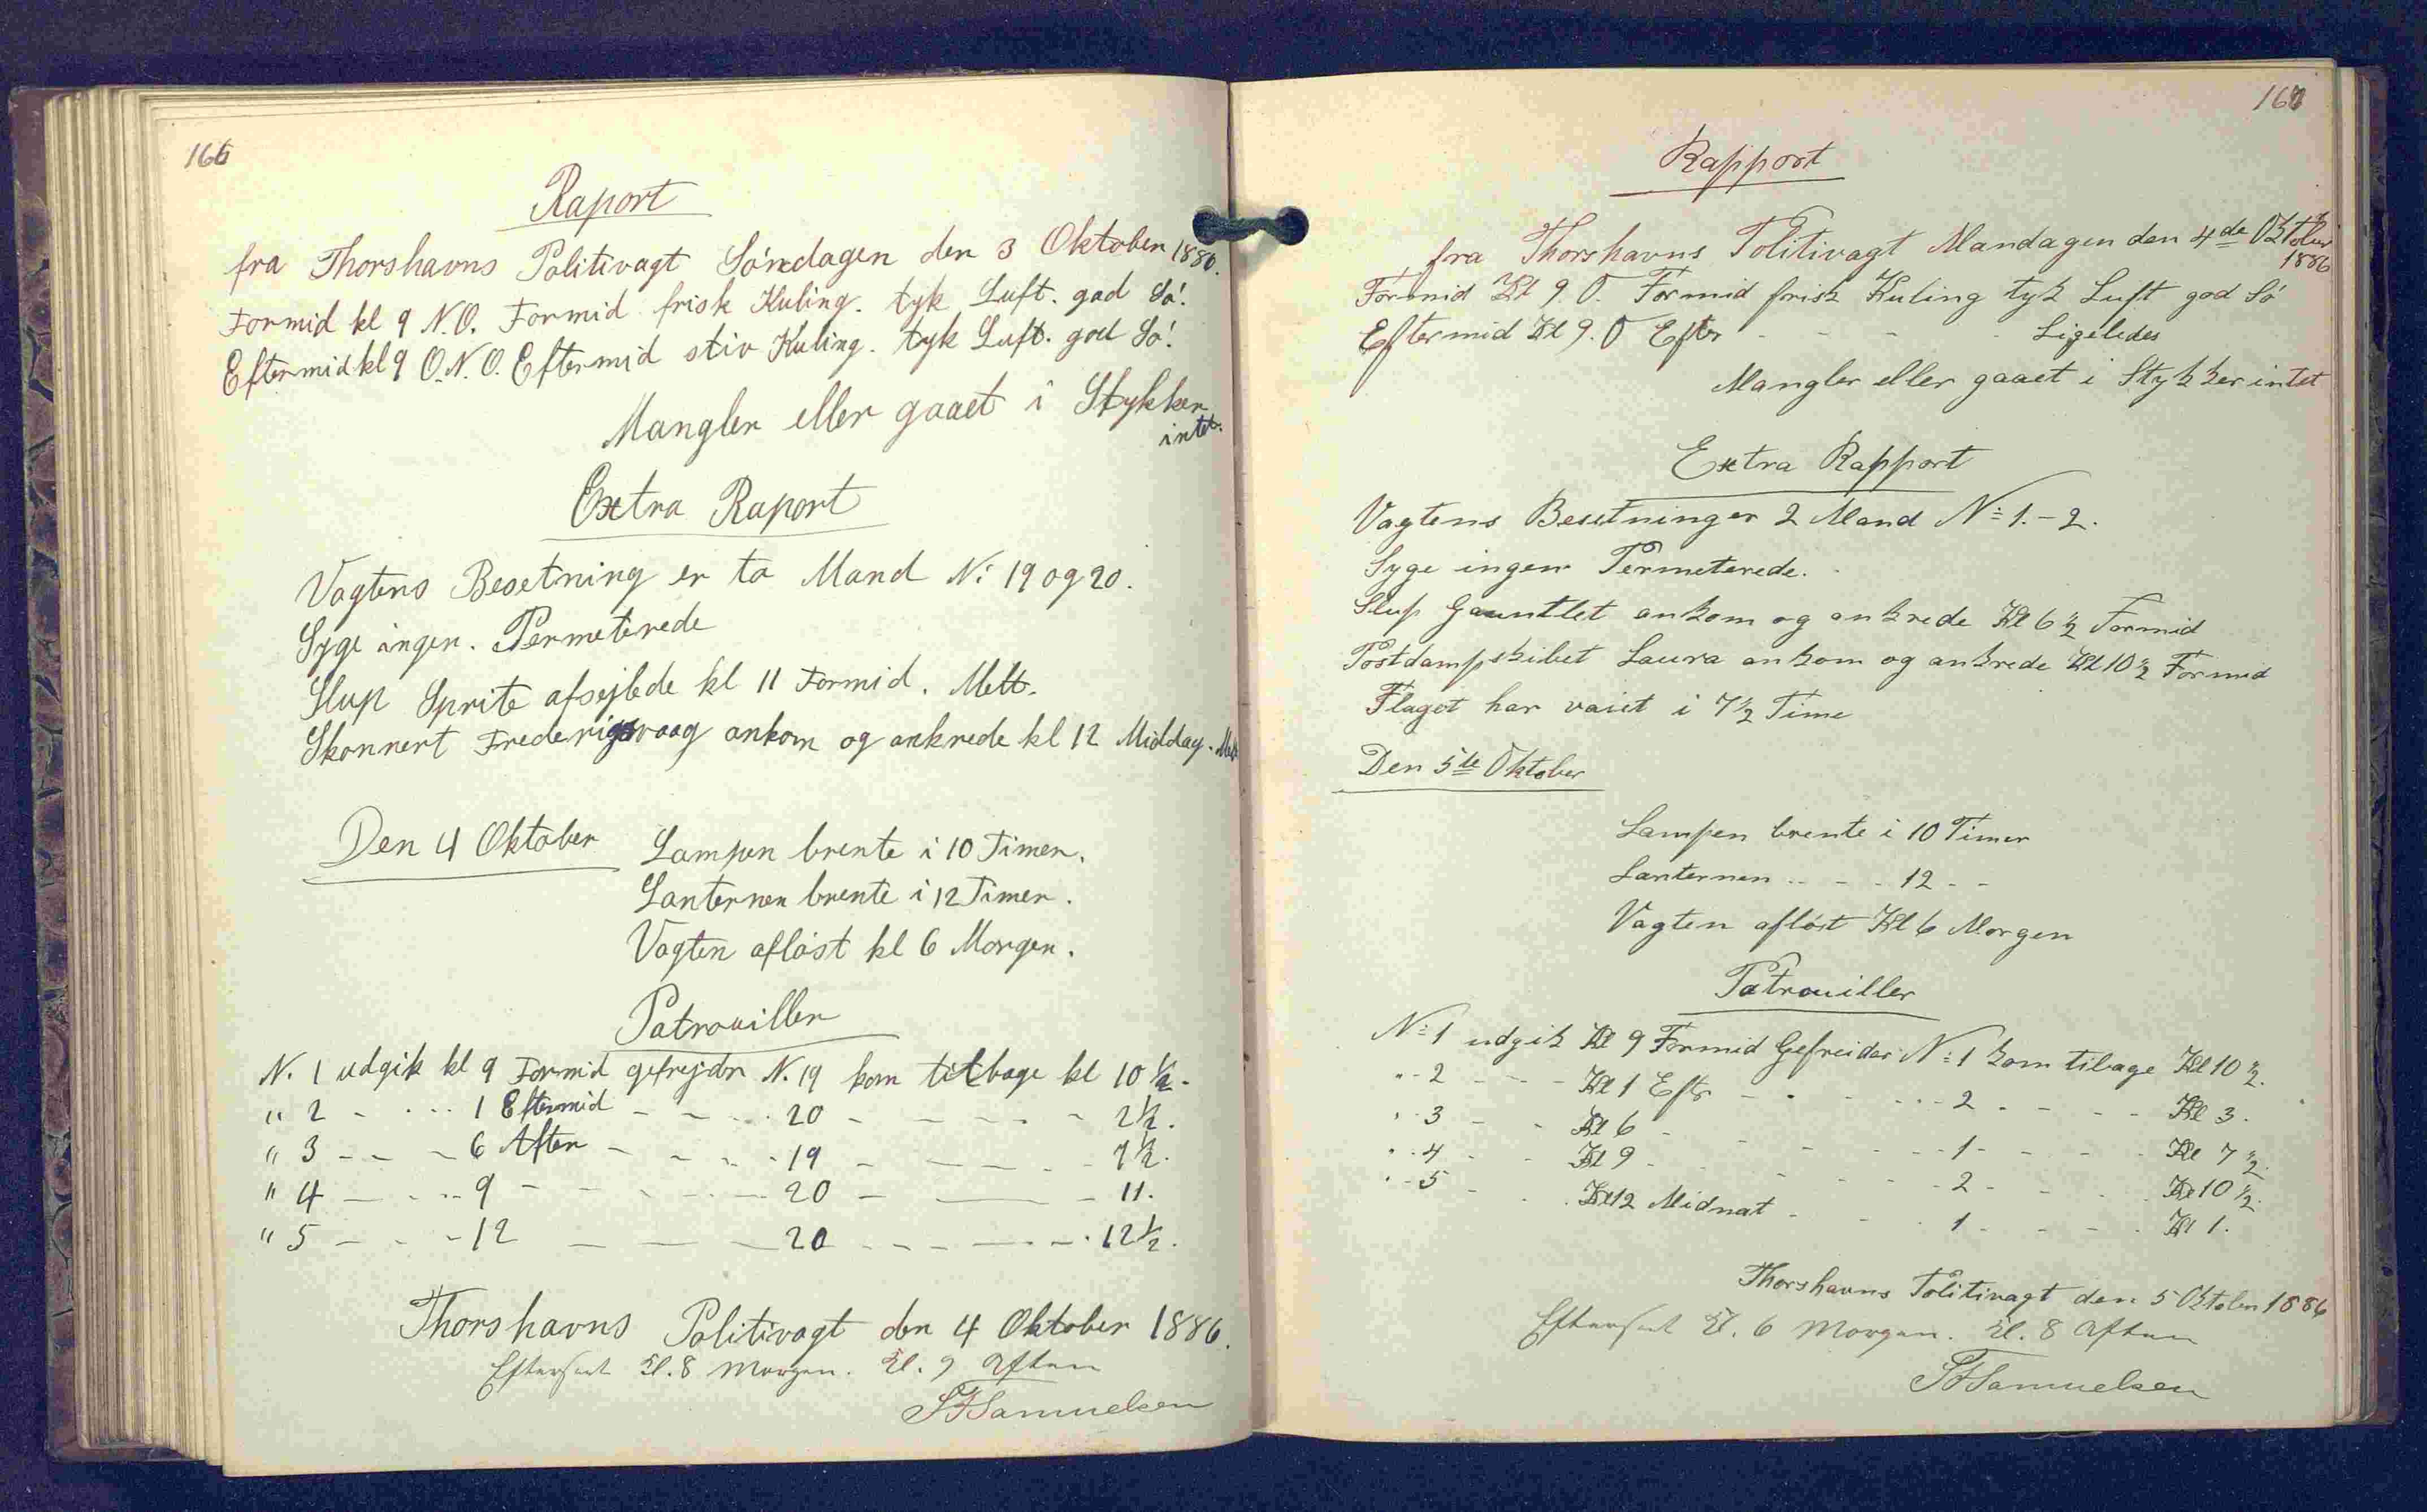 166
Raport
fra Thorshavns Politivagt Søndagen den 3 Oktober 1886.
Formid kl 9 N.O. Formid frisk Kuling. tyk Luft. god Sø!
Eftermid kl 9 O.N.O. Eftermid stiv Kuling. tyk Luft. god Sø!
Mangler eller gaaet i Stykker
intet.
Extra Raport
Vagtens Besetning er to Mand N: 19 og 20.
Syge ingen. Permeterede
Slup Sprite afsejlede kl 11 Formid. Mett.
Skonnert Frederigsvaag ankom og ankrede kl 12 Middag.
Den 4 Oktober
Lampen brente i 10 Timer.
Lanternen brente i 12 Timer.
Vagten afløst kl 6 Morgen.
Patrouiller
N. 1 udgik kl 9 Formid gefrejder N. 19 kom tilbage kl 10 ½.
" 2 - - - - 1 Eftermid - - - - 20 - - - - - 2 ½.
" 3 - - - 6 Aften - - - - 19 - - - - - 7 ½.
" 4 - - - - 9 - - - - - 20 - - - 11.
" 5 - - - 12 - - - 20 - - - - - 12 ½.
Thorshavns Politivagt den 4 Oktober 1886.
Efterseet Kl. 8 Morgen. Kl. 9 Aften
Samuelsen
Rapport
fra Thorshavns Politivagt Mandagen den 4de Oktober
1886
Formid Kl 9. O. Formid frisk Kuling tyk Luft god Sø
Eftermid Kl 9. O Eftr - - - - Ligeledes
Mangler eller gaaet i Stykker intet
Extra Rapport
Vagtens Besetning er 2 Mand N: 1. - 2.
Syge ingen Permeterede.
Slup Gauntlet ankom og ankrede Kl 6 ½ Formid
Postdampskibet Laura ankom og ankrede Kl 10 ½ Formid
Flaget har vaiet i 7 ½ Time
Den 5te Oktober
Lampen brente i 10 Timer
Lanternen - - - - 12 - -
Vagten afløst Kl 6 Morgen
Patrouiller
N: 1 udgik Kl 9 Formid Gefreider N: 1 kom tilbage Kl 10 ½.
" - 2 - - - Kl 1 Eftr - - - - - 2 - - - - Kl 3.
" - 3 - - Kl 6 - - - - - 1 - - - - Kl 7 ½.
" - 4 - - Kl 9 - - - - - 2 - - - - Kl 10 ½.
" - 5 - - Kl 12 Midnat - - - 1 - - - - Kl 1.
Thorshavns Politivagt den 5 Oktober 1886
Efterseet Kl. 6 Morgen. Kl. 8 Aften
Samuelsen